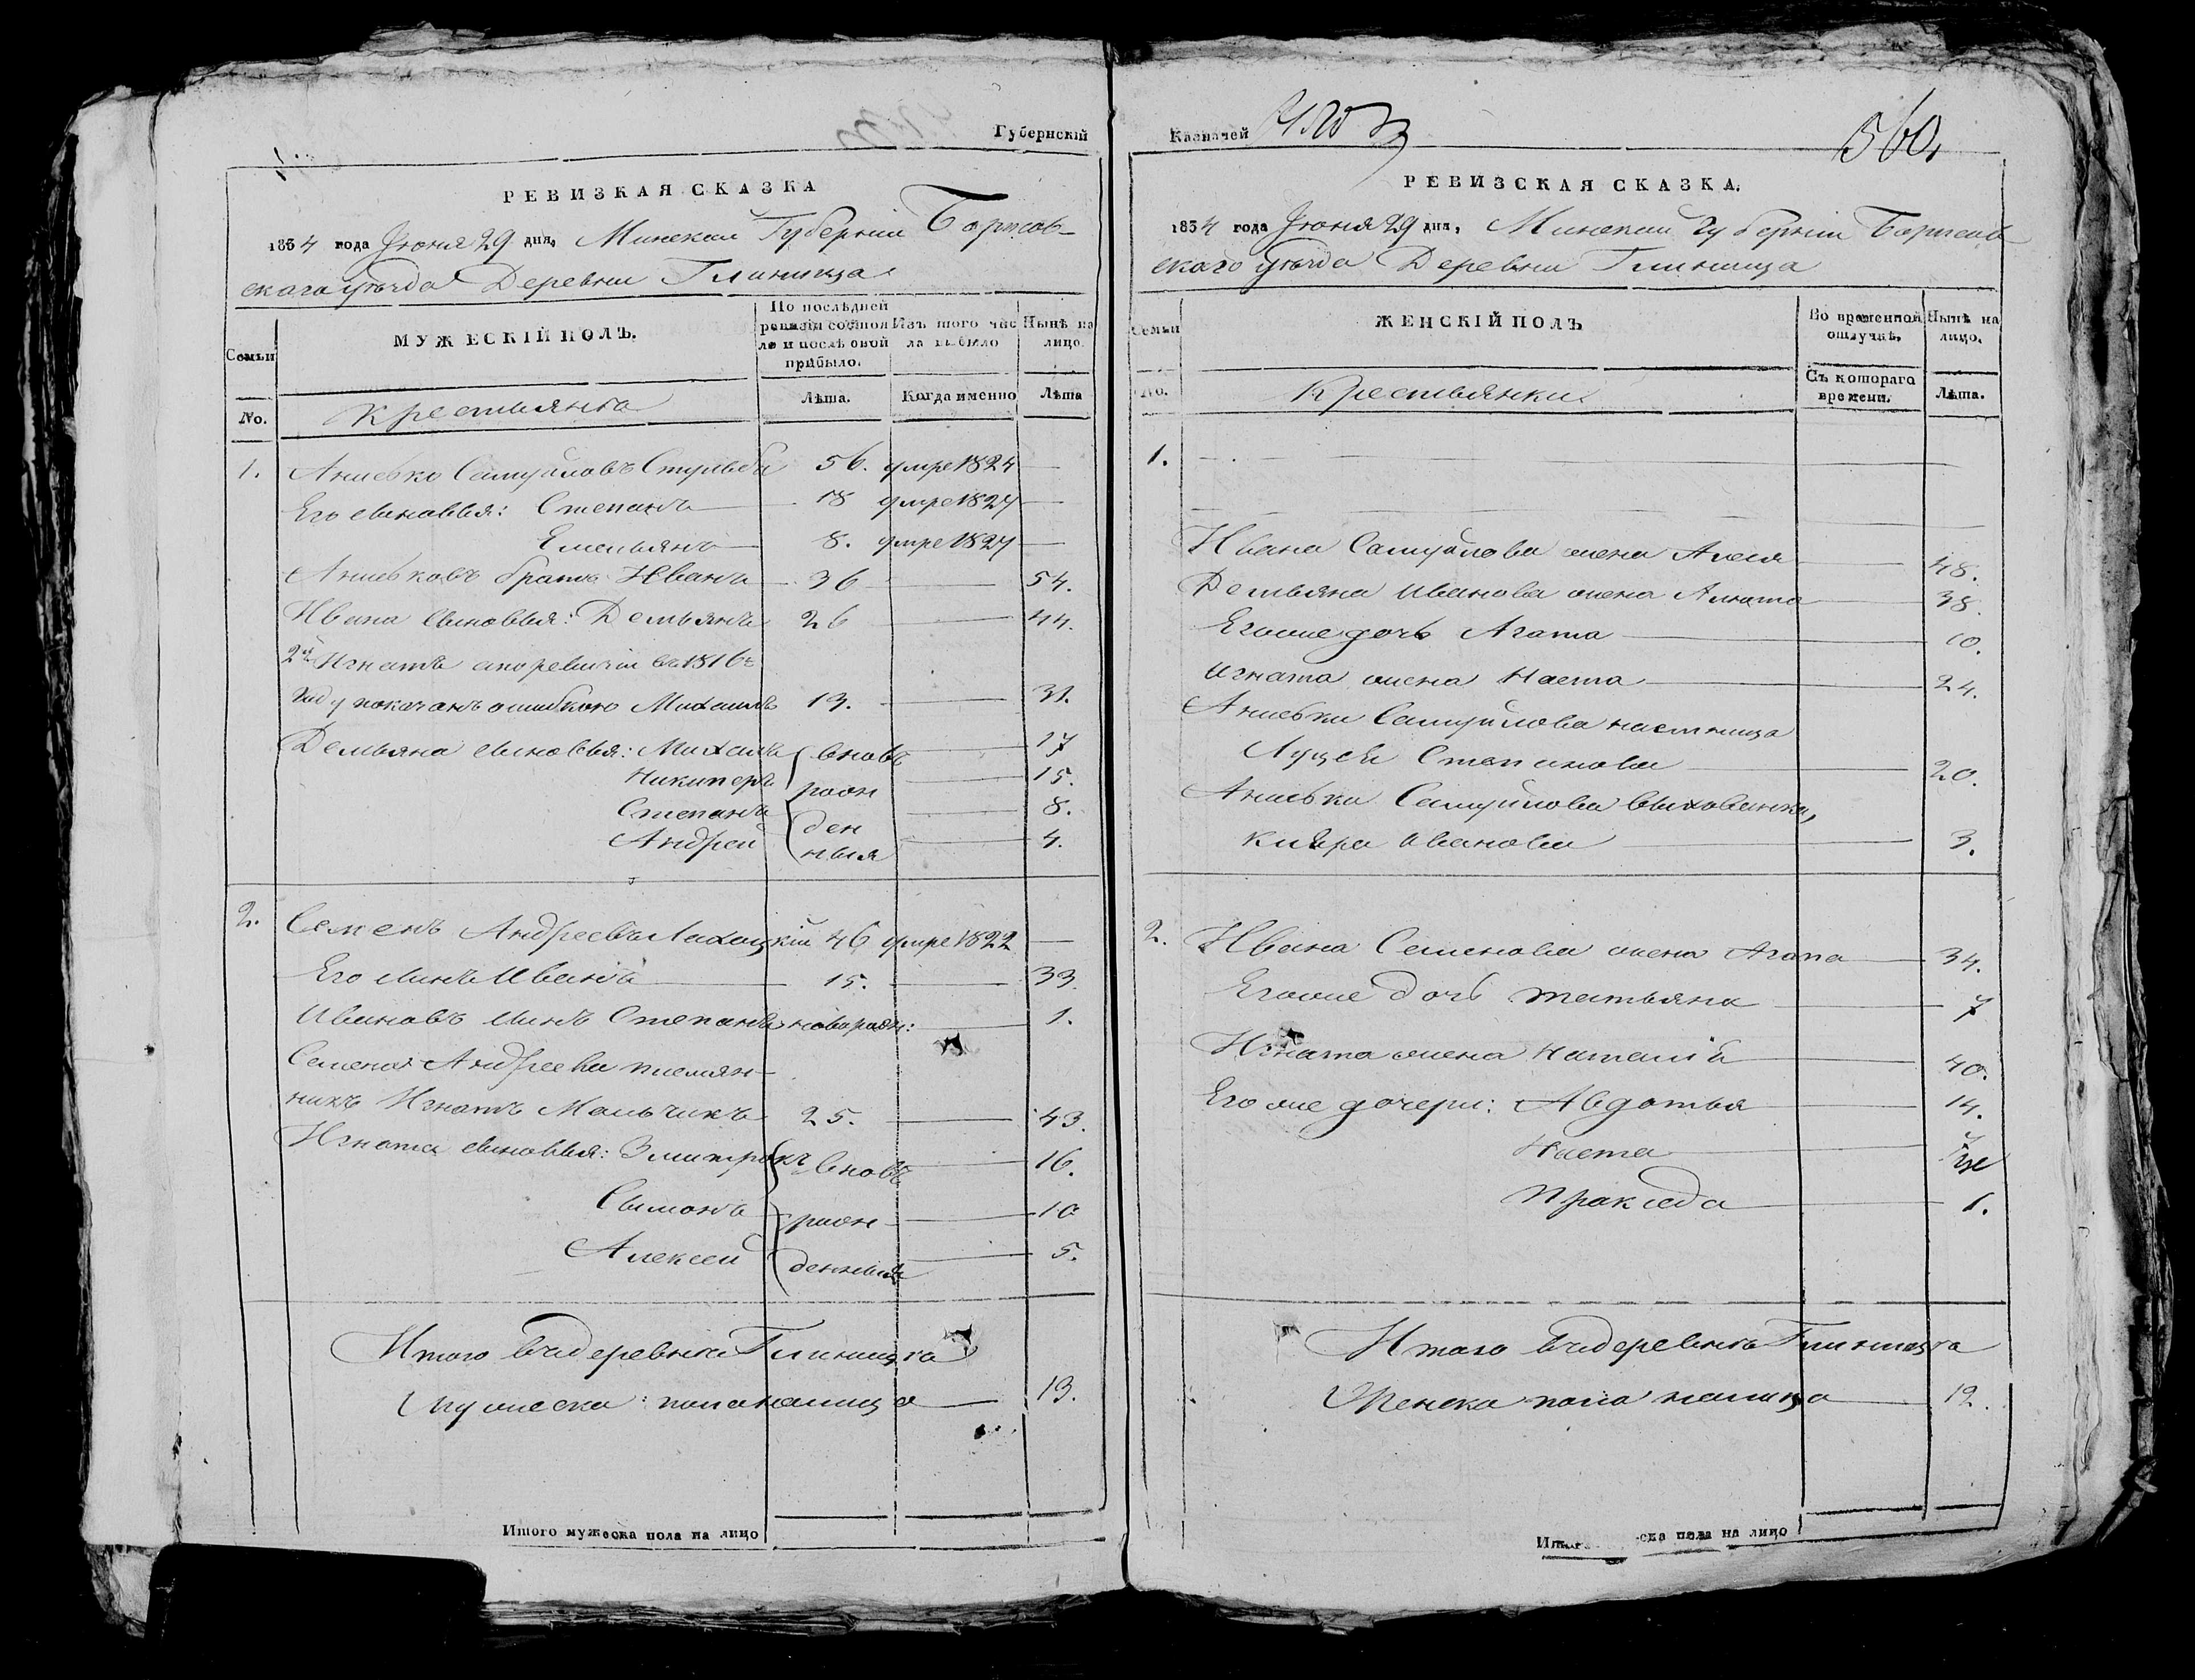 Губернскій
РЕВИЗКАЯ СКАЗКА
1834 года Іюня 29 дня, Минской Губерніи Борисов-
скаго уѣзда Деревни Глиница
Семьи
МУЖЕСКІЙ ПОЛЪ.
По послѣдней ревизіи состояло и послѣ оной прибыло.
Изъ того числа выбыло
Нынѣ на лицо.
No.
Крестьяна
Лѣта.
Когда именно
Лѣта
1. Анисько Самуйловъ Стульба 56. умре 1824 —
Его сыновья: Степанъ 18 умре 1824 —
Емельянъ 8. умре 1827 —
Аниськовъ братъ Иванъ 36 — 54.
Ивана сыновья: Демьянъ 26 — 44.
2й Игнатъ а по ревизіи въ 1816 г
году показанъ ошибкою Михаилъ 13. — 31.
Демьяна сыновья: Михаилъ вновь — 17
Никиперъ рожд — 15.
Степанъ ден — 8.
Андрей ныя — 4.
2. Семенъ Андреевъ Лихацкій 46 умре 1822 —
Его сынъ Иванъ 15. — 33.
Ивановъ сынъ Степанъ новорожд: — 1.
Семена Андреева племян-
никъ Игнатъ Мальчикъ 25. — 43.
Игната сыновья: Змитрокъ вновь — 16.
Сымонъ рожд — 10
Алексей денныя — 5.
Итого въ деревнѣ Глиницѣ
Мужеска пола налицо — 13.
Итого мужеска пола на лицо
Казначей
560,
РЕВИЗСКАЯ СКАЗКА.
1834 года Іюня 29 дня, Минской Губерніи Борисов
скаго уѣзда Деревни Глиница
Семьи
ЖЕНСКІЙ ПОЛЪ
Во временной отлучкѣ.
Нынѣ на лицо.
No.
Крестьянки
Съ котораго времени.
Лѣта.
1.
Ивана Самуйлова жена Алеся — 48.
Демьяна Иванова жена Агата — 38.
Егоже дочь Агата — 10.
Игната жена Наста — 24.
Аниська Самуйлова
Луцея Степанова — 20.
Аниська Самуйлова выхованка,
Иванова — 3.
2. Ивана Семенова жена Агапа — 34.
Егоже дочь Татьяна — 7
Игната жена Наталія — 40.
Его же дочери: Авдотья — 14.
Наста — 7
Пракседа — 1.
Итого въ деревнѣ Глиницѣ
Женска пола налицо — 12.
Итого ска пола на лицо